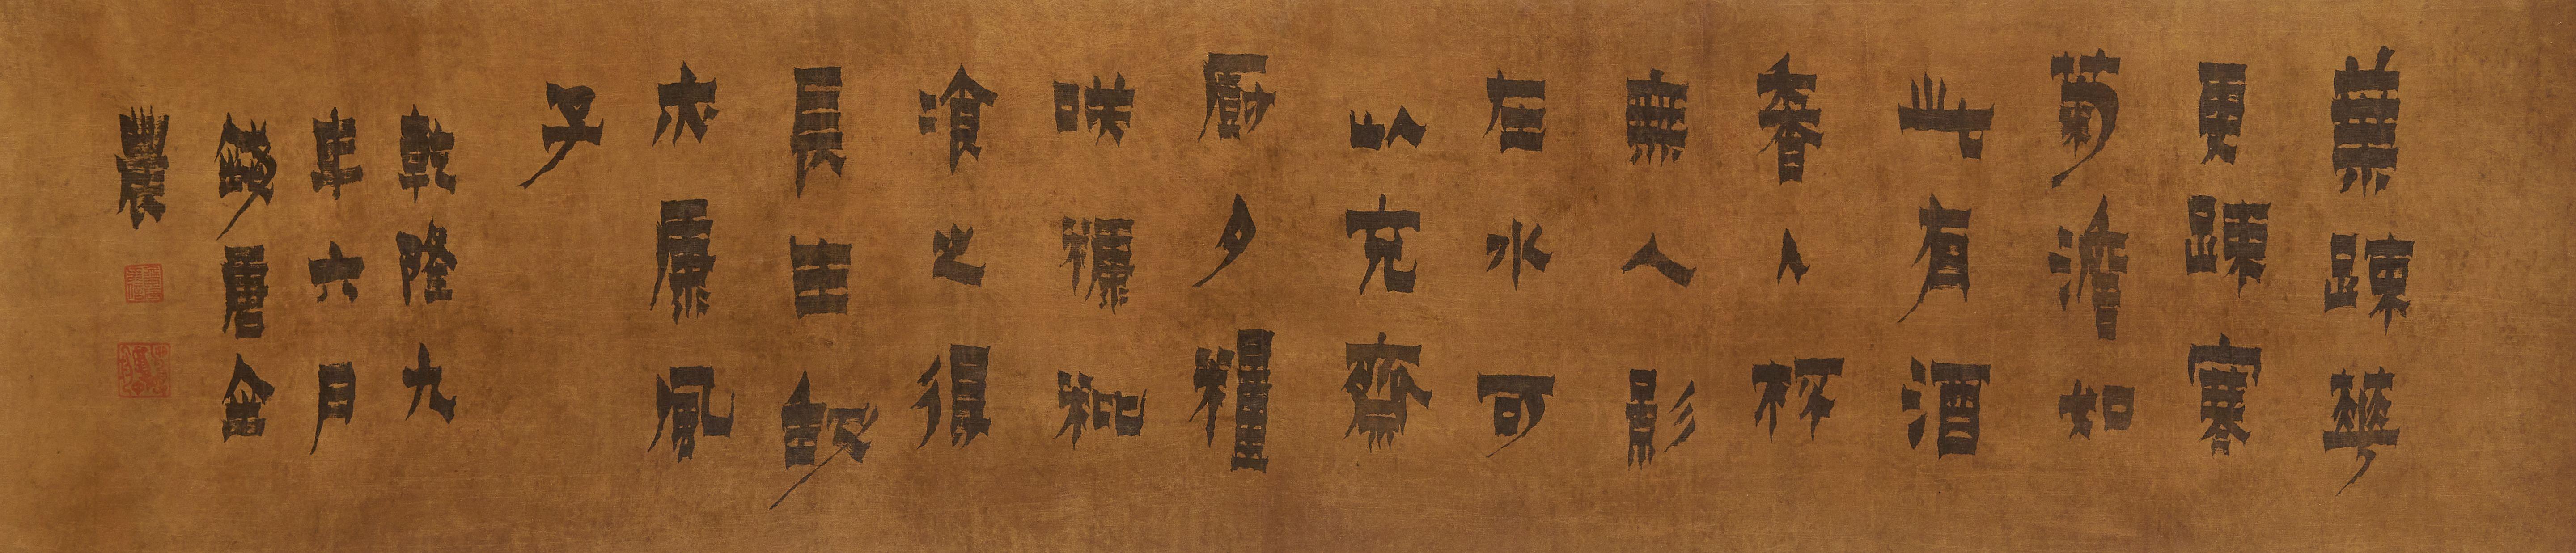 葉踈華
更踈寒
菊澹如
此有酒
香入杯
無人影
在水可
以充齋
厨夕糧
咲糠粃
飡之得
長生
求康風
子
乾隆九
年六月
錢唐金
農